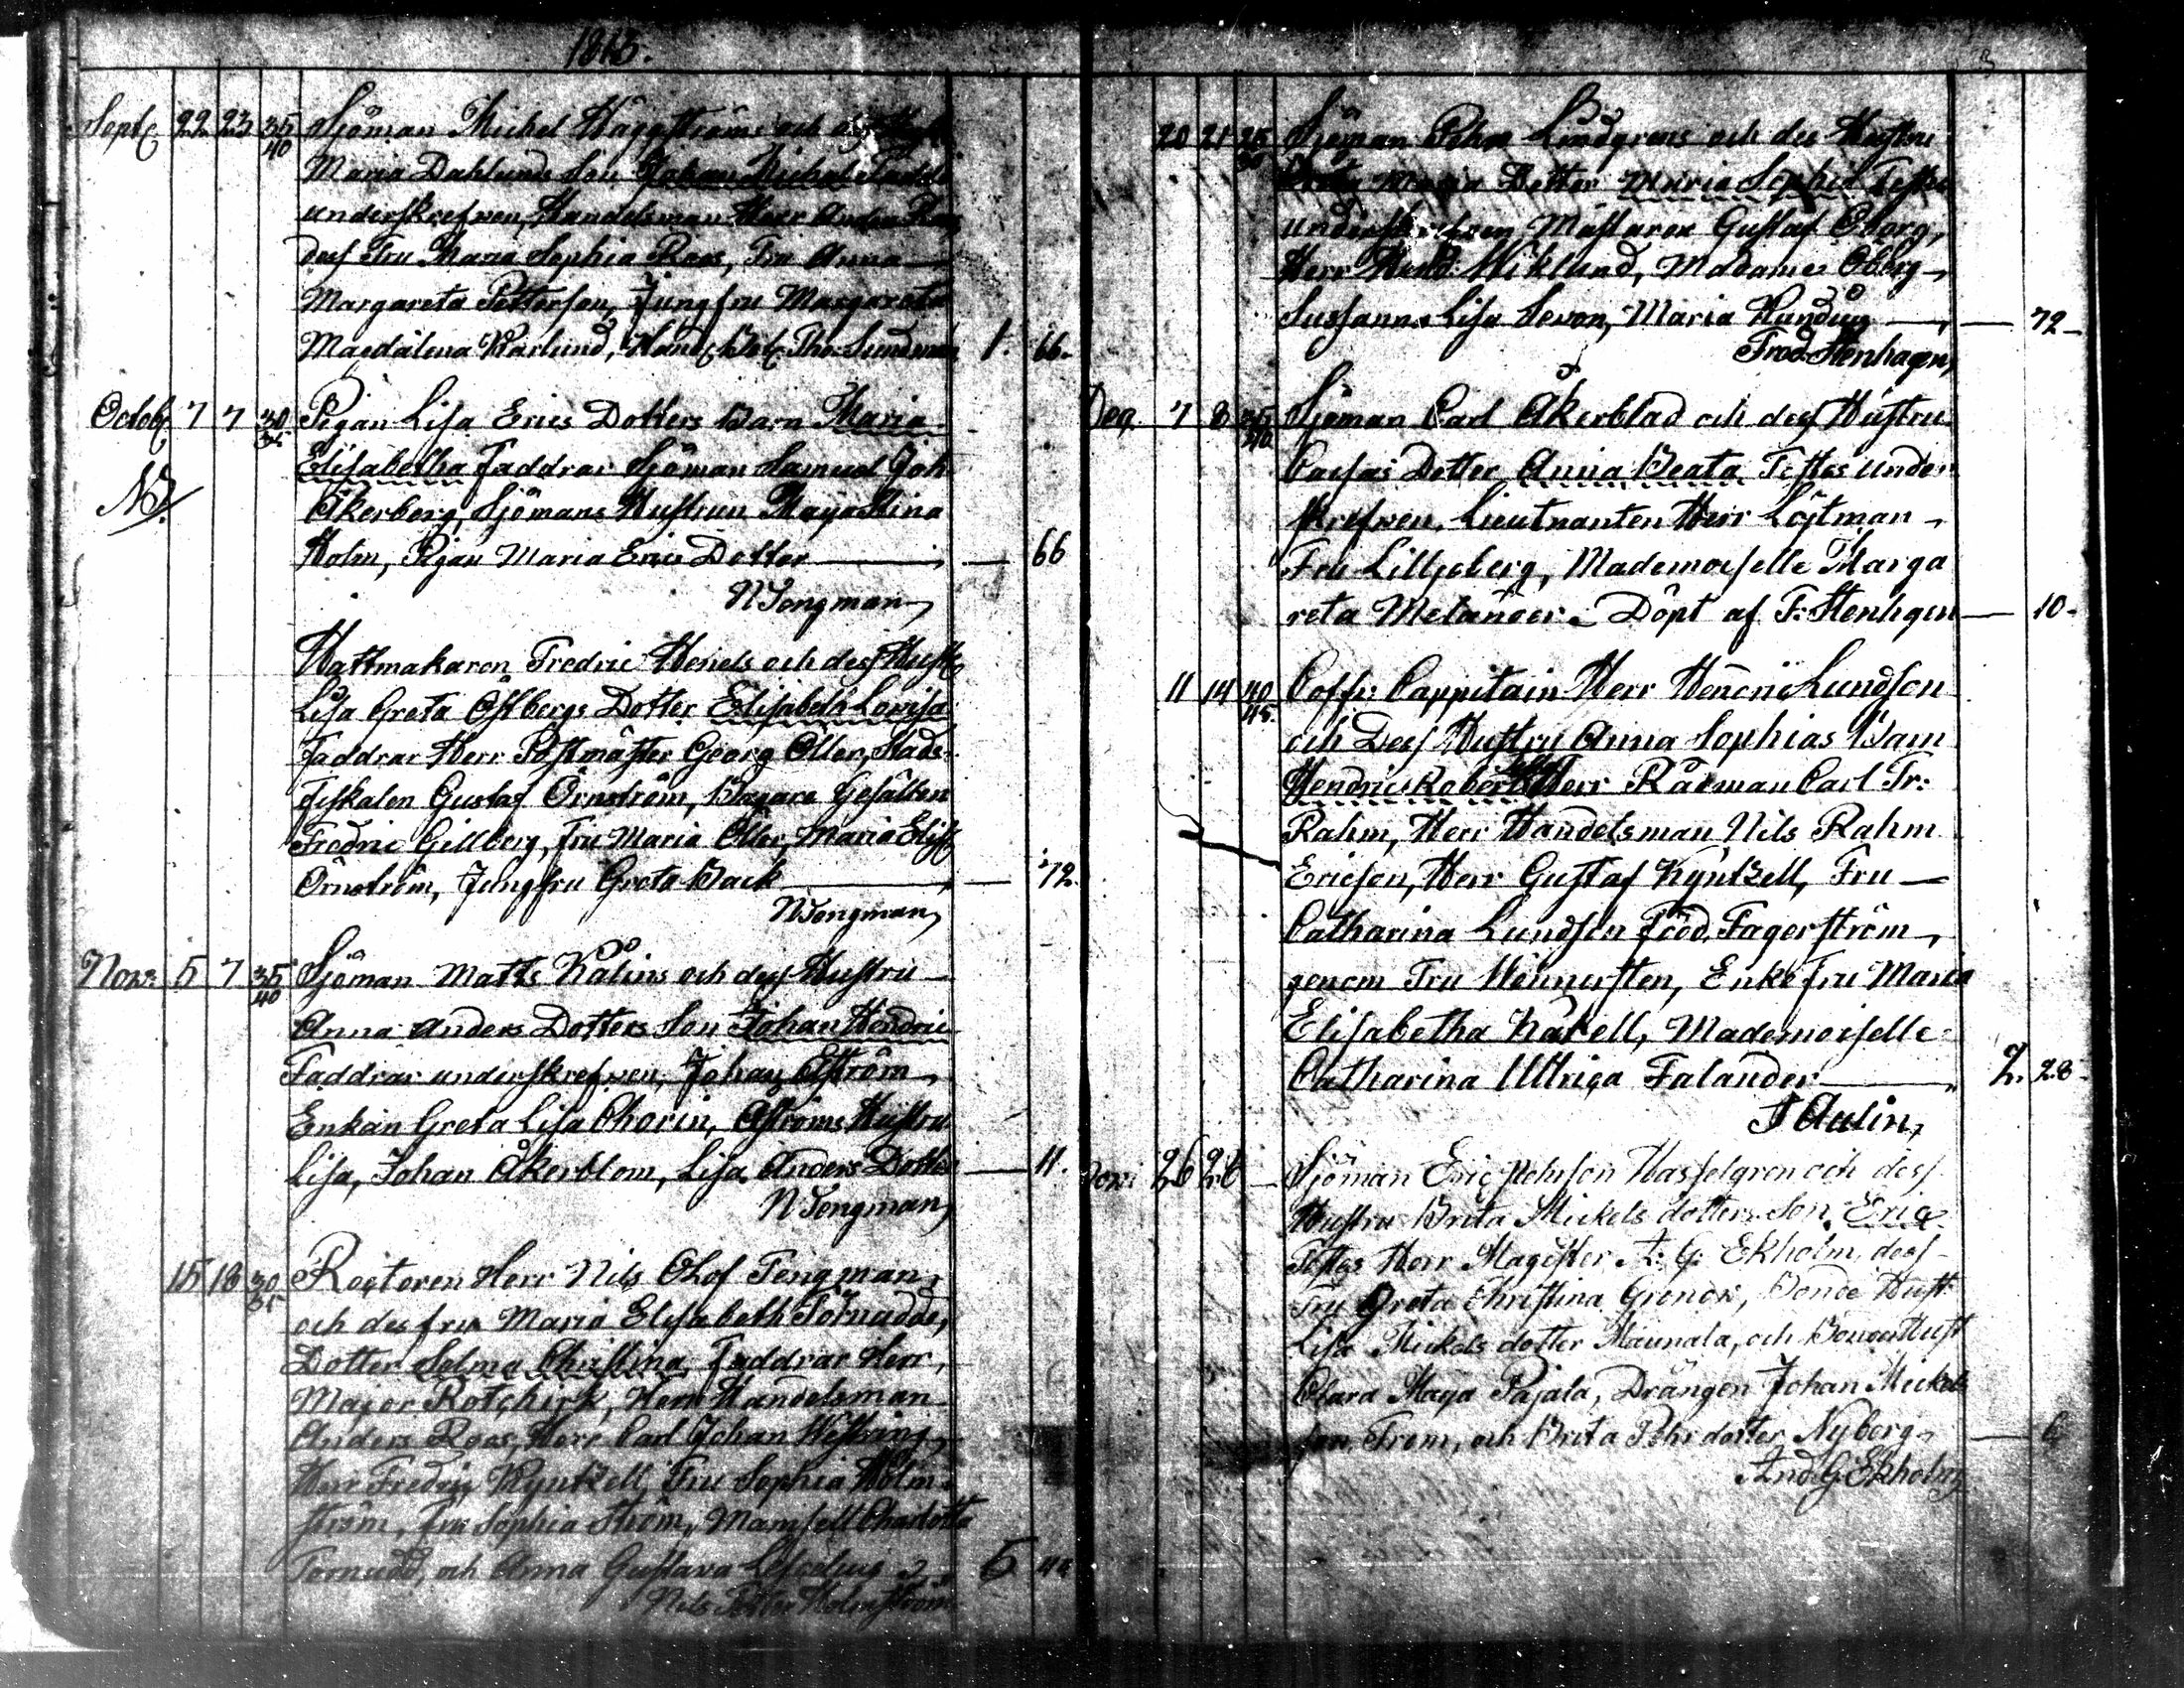 1813.
Septr 22 23 35/40 Sjöman Michel Häggströms och
Maria Dahlunds Son Johan Michel Fadd.
underskrefwen, Handelsman Herr Anders Roos
dess Fru Maria Sophia Roos, Fru Anna
Margareta Petterson, Jungfru Margareta
Magdalena Karlund, Handl. Bok. Tho: Sundman 1. 66.
Octobr 7 7 30/35 Pigan Lisa Erics Dotters Barn Maria
Elisabetha Faddrar Sjöman Samuel Joh.
NB. Åkerberg, Sjömans Hustrun Maja Stina
Holm, Pigan Maria Erics Dotter — 66
N Tengman
Hattmakaren Fredric Henels och dess Hustr.
Lisa Greta Östbergs Dotter Elisabeth Lovisa
Faddrar Herr Postmäster Georg Öller, Stads
Fiskalen Gustaf Örnström, Bagare Gesällen
Fredric Gillberg, Fru Maria Öller, Maria Elis.
Örnström, Jungfru Greta Back — 72.
N Tengman
Nov: 5 7 35/40 Sjöman Matts Kalins och dess Hustru
Anna Anders Dotters Son Johan Hendric
Faddrar underskrefwen, Johan
Enkan Greta Lisa Chorin, Åströms Hustru
Lisa, Johan Åkerblom, Lisa Anders Dotter — 11.
N Tengman
15 18 30/35 Rectoren Herr Nils Olof Tengman
och des fru Maria Elisabeth Törnudds,
Dotter Selma Christina, Faddrar Herr
Major Rotchirk, Herr Handelsman
Anders Roos, Herr Carl Johan Westring,
Herr Fredric Kyntzell, Fru Sophia Holm-
ström, Fru Sophia Ström, Mamsell Charlotta
Törnudd, och Anna Gustava 5 44
Nils Petter Holmström
20 21 25/30 Sjöman Pehr Lindgrens och des Hustru
Greta Maria Dotter Maria Sophia Testes
underskrefwen Mästaren Gustaf Öberg,
Herr Handl: Wiklund, Madame Öberg,
Sussanna Lisa Sevon, Maria — 72
Fred Stenhagen,
Dec. 7 8 35/40 Sjöman Carl Åkerblad och dess Hustru
Caisas Dotter Anna Beata Testes under
skrefwen, Lieutnanten Herr Löjtman
Fru Lilljeberg, Mademoiselle Marga
reta Melander. Döpt af F: Stenhgen — 10.
11 14 40/45 Coffr: Cappitain Herr Henric Lundson
och Dess Hustru Anna Sophias Barn
Hendric Robert Herr Rådman Carl Fr:
Rahm, Herr Handelsman Nils Rahm
Ericson, Herr Gustaf Kyntzell, Fru
Catharina Lundson född Fagerström,
genom Fru Wennersten, Enke fru Maria
Elisabetha Kåkell, Mademoiselle
Catharina Ulrica Falander — 2. 28
J Aulin,
Nov: 26 26 — Sjöman Eric Pehrson Hasselgren och dess
Hustru Brita Mickels dotters Son Eric
Testes Herr Magister A: G: Ekholm, dess
Fru Greta Christina Grenow, Bonde Hust:
Lisa Mickels dotter Maunala, och Bonden Hust
Clara Maja Pajala, Drängen Johan Mickels
son From, och Brita Pehrdotter Nyberg — 6
And G Ekholm